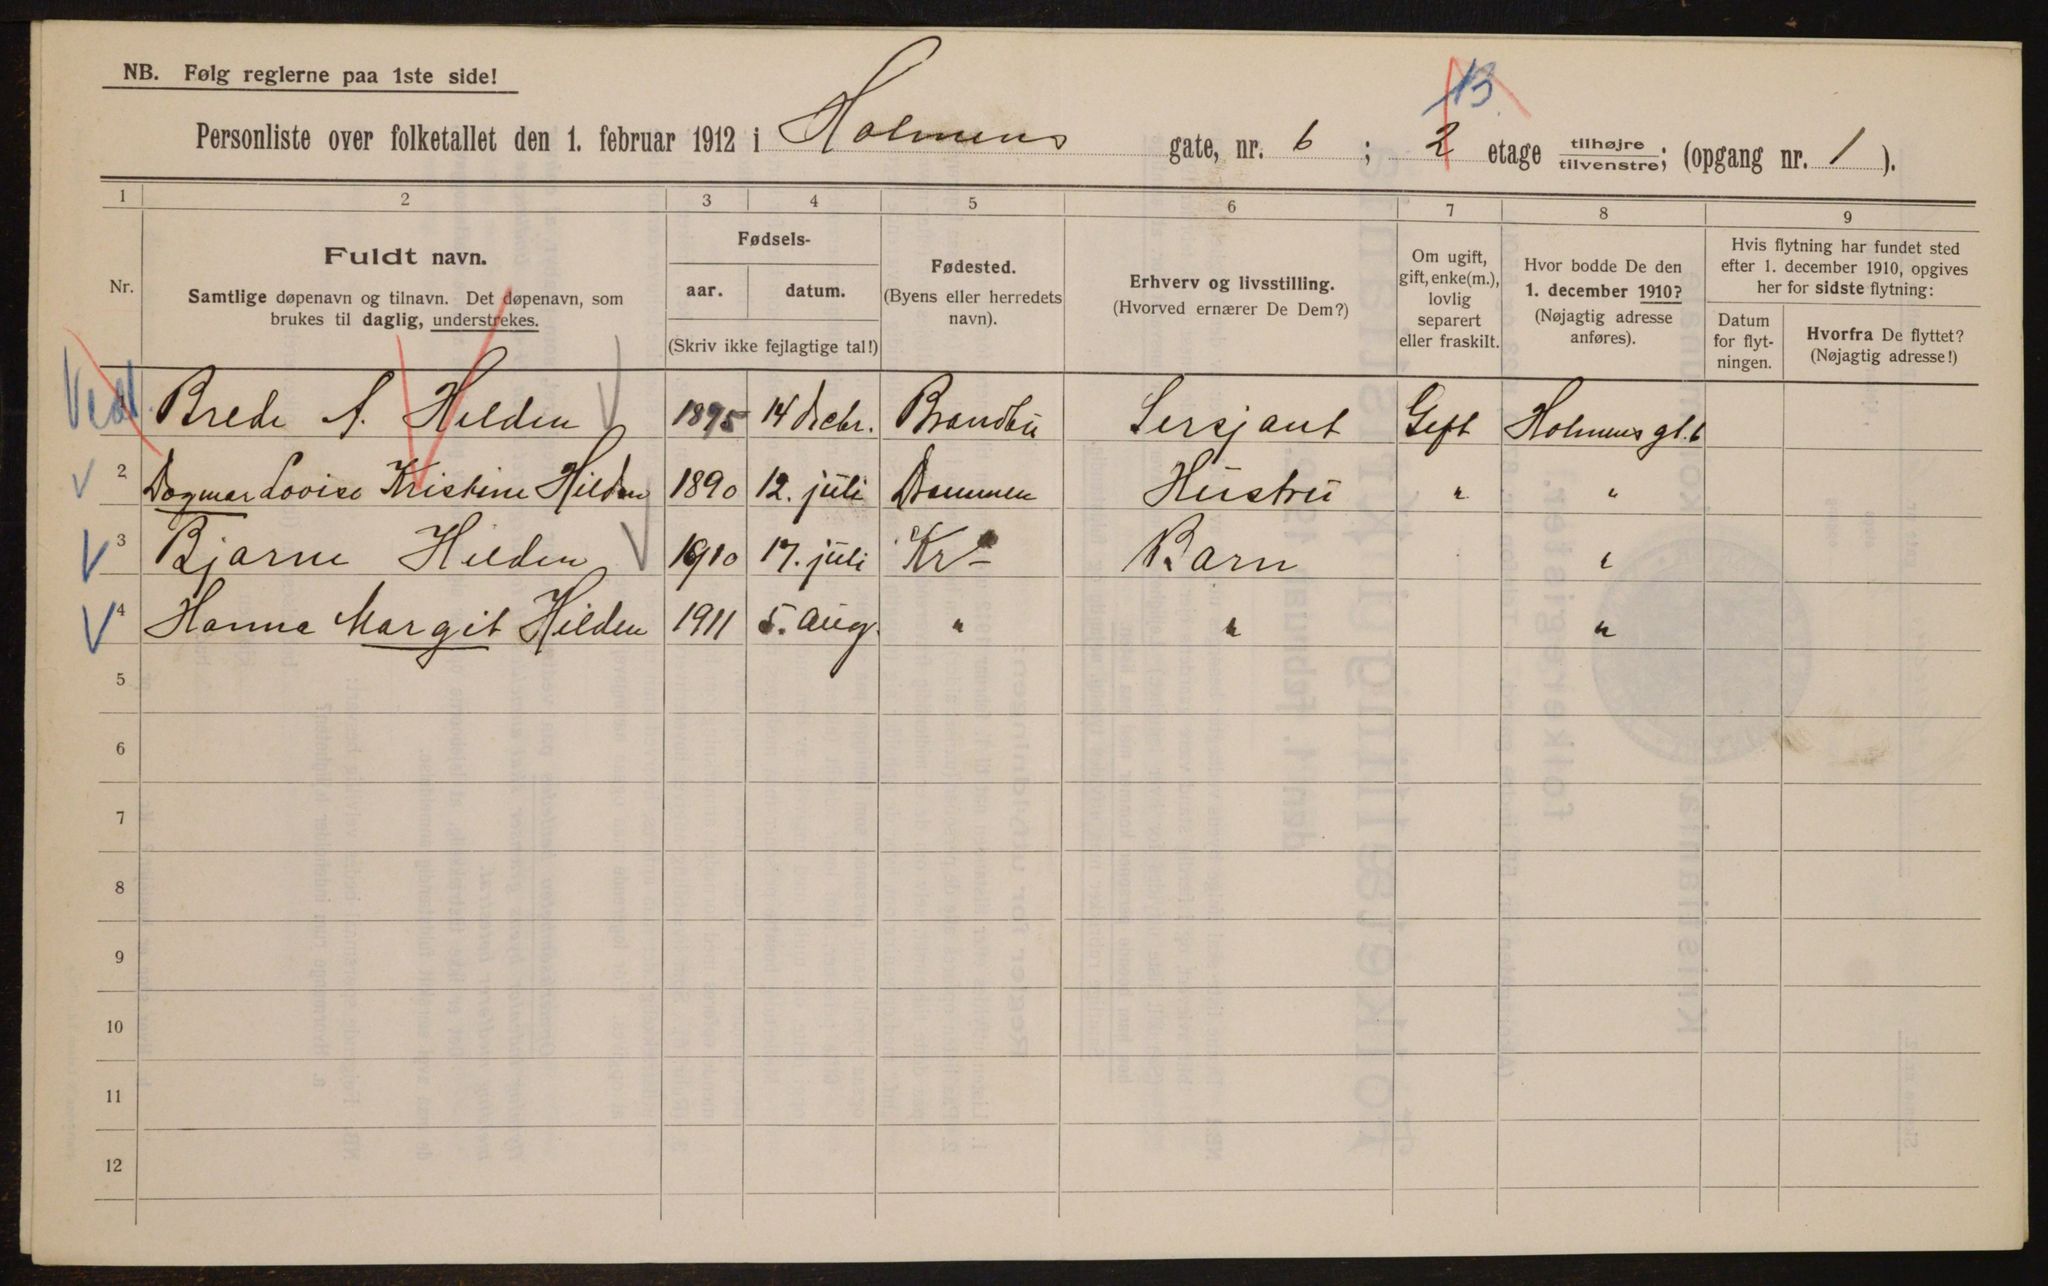 NB. Følg reglerne paa 1ste side!
13
Personliste over folketallet den 1. februar 1912 i Holmens gate, nr. 6; 2 etage tilhøjre/tilvenstre; (opgang nr. 1).
1 2 3 4 5 6 7 8 9
Nr.
Fuldt navn.
Samtlige døpenavn og tilnavn. Det døpenavn, som
brukes til daglig, understrekes.
Fødsels-
aar. datum.
(Skriv ikke fejlagtige tal!)
Fødested.
(Byens eller herredets
navn).
Erhverv og livsstilling.
(Hvorved ernærer De Dem?)
Om ugift,
gift, enke(m.),
lovlig
separert
eller fraskilt.
Hvor bodde De den
1. december 1910?
(Nøjagtig adresse
anføres).
Hvis flytning har fundet sted
efter 1. december 1910, opgives
her for sidste flytning:
Datum
for flyt-
ningen.
Hvorfra De flyttet?
(Nøjagtig adresse!)
1 Brede A. Hilden 1895 14 decbr. Brandbu Sersjant Gift Holmensgt. 6
2 Dagmar Lovise Kristine Hilden 1890 12. juli Drammen Hustru " "
3 Bjarne Hilden 1910 17. juli Kr.a Barn "
4 Hanna Margit Hilden 1911 5. aug. " " "
5
6
7
8
9
10
11
12